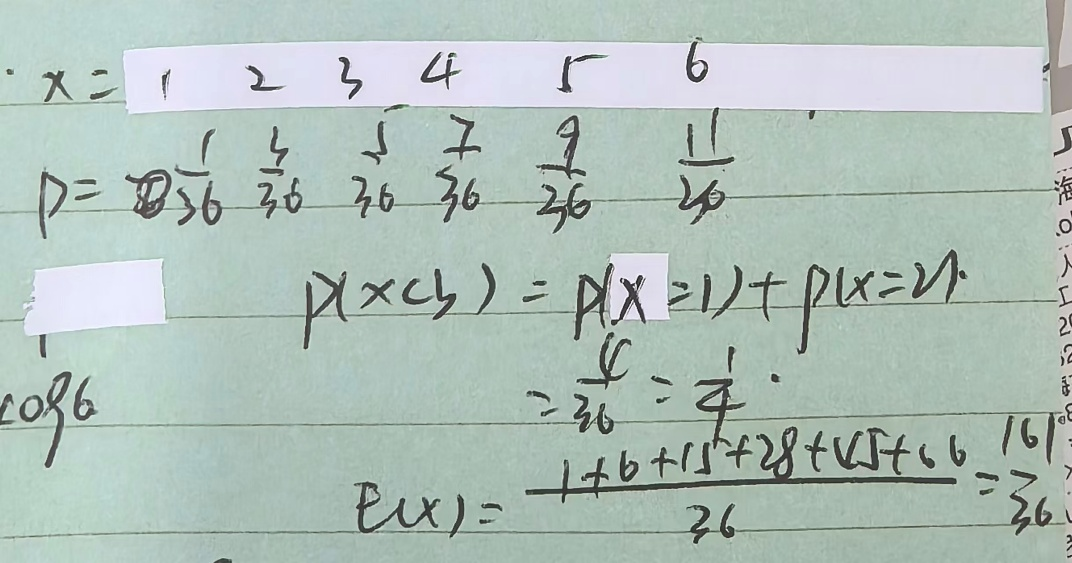 x = 1 2 3 4 5 6
p = 1/36 3/36 5/36 7/36 9/36 11/36
p(x<3) = p(x=1)+p(x=2).
= 4/36 = 1/4.
E(x) = (1+6+15+28+45+66)/36 = 161/36
海